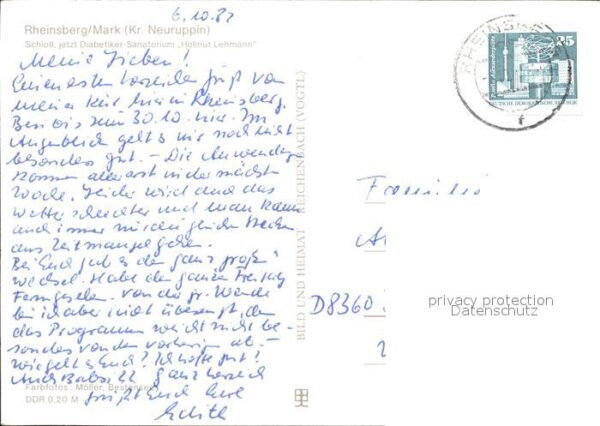 6.10.82
Rheinsberg/Mark (Kr. Neuruppin)
Schloß, jetzt Diabetiker-Sanatorium „Helmut Lehmann"
Meine Lieben!
Einen ersten herzlichen Gruß von
meiner Kur hier in Rheinsberg.
Bin bis zum 30.10. hier. Im
Augenblick geht's mir noch nicht
besonders gut. – Die Anwendung
kommen aber erst in der nächsten
Woche. Leider wird auch das
Wetter schlechter und man kann
auch immer nur den gleichen
aus Zeitmangel gehen.
Bei Euch gab es den „ganz großen"
Wechsel. Habe den ganzen Freitag
Ferngesehen. Von der gr. Wende
bin ich aber nicht überzeugt, denn
das Programm weicht nicht be-
sonders von dem vorherigen ab. –
Wie geht es Euch? Ich hoffe gut!
Auch ganz herzlich
grüßt Euch Eure
Edith
Farbfotos: Möller, Bestensee
DDR 0,20 M
BILD UND HEIMAT REICHENBACH (VOGTL)
RHEINSBERG
25
DEUTSCHE DEMOKRATISCHE REPUBLIK
f
Familie
D8360
privacy protection
Datenschutz